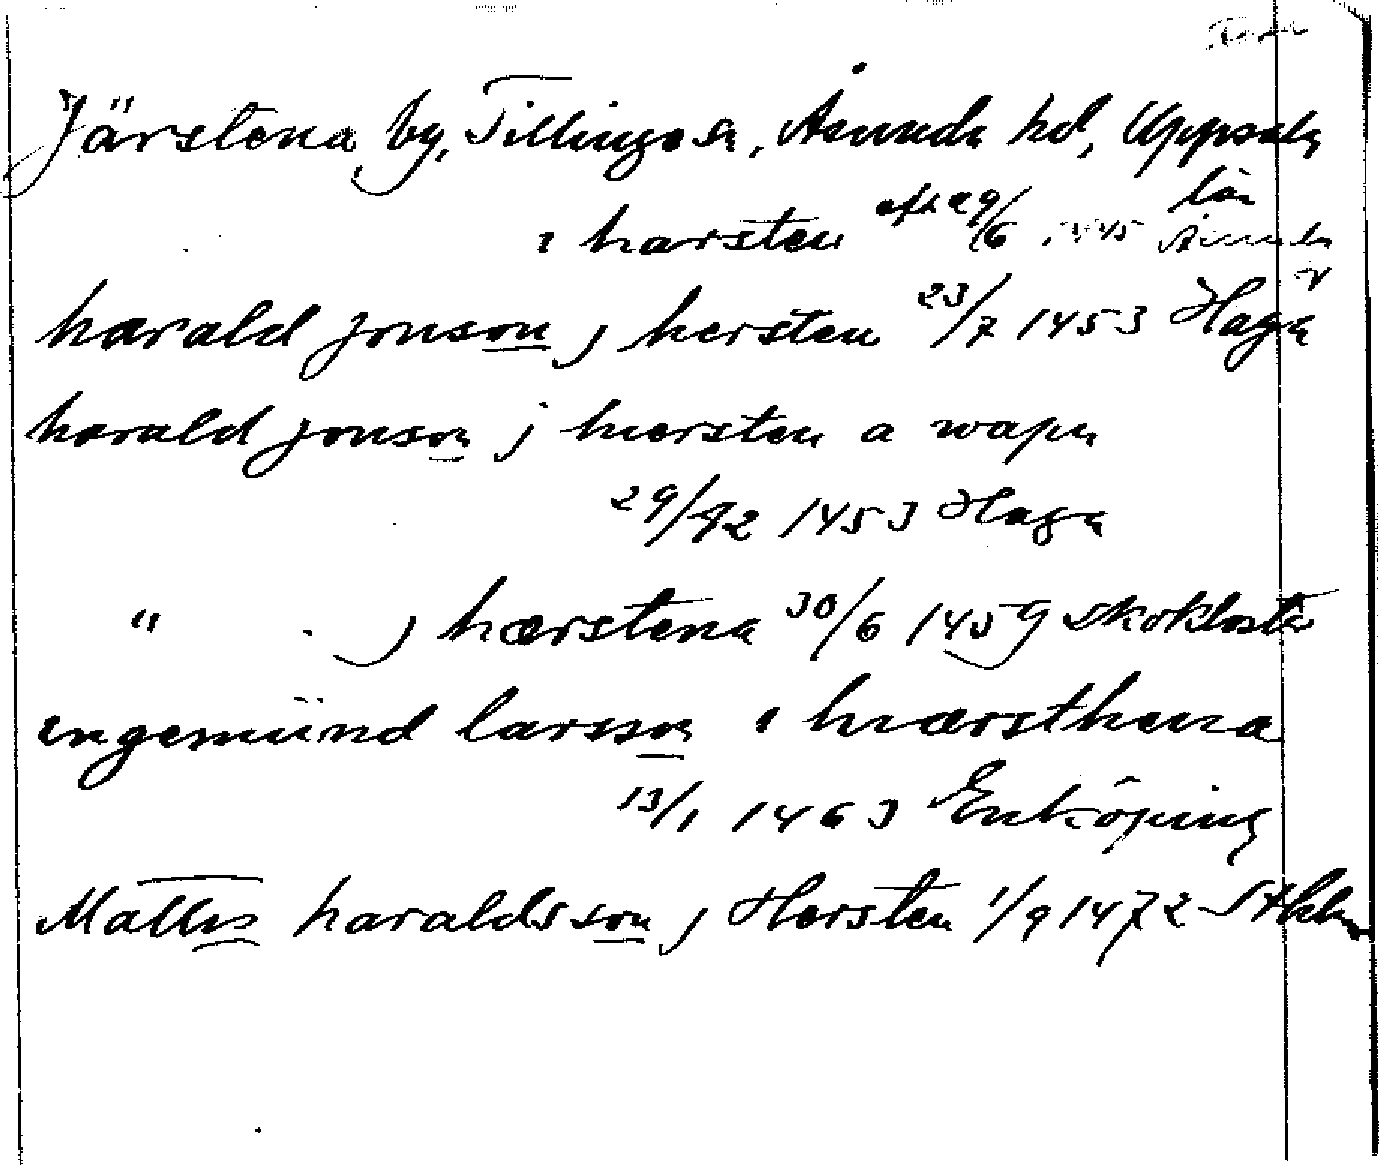 Järstena, by, Tillinge sn, Åsunda hd, Uppsala
län
i harsten eft 29/6 1445 Åsunda
harald jonson j hersten 23/7 1453 Haga
harald jonson j hiersten a wapn
29/12 1453 Haga
" j hærstena 30/6 1459 Skokloster
engemünd larsson i hiærsthena
13/1 1463 Enköping
Mattis haraldsson j Hersten 1/9 1472 Sthlm